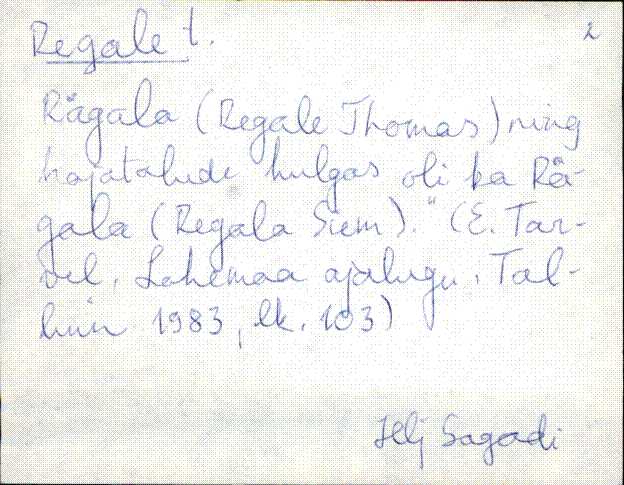 Regale t. 2
Rägala (Regale Thomas) ning
hajatalude hulgas oli ka Rä-
gala (Regala Siem)." (E. Tar-
vel, Lahemaa ajalugu, Tal-
linn 1983, lk. 103)
Hlj Sagadi